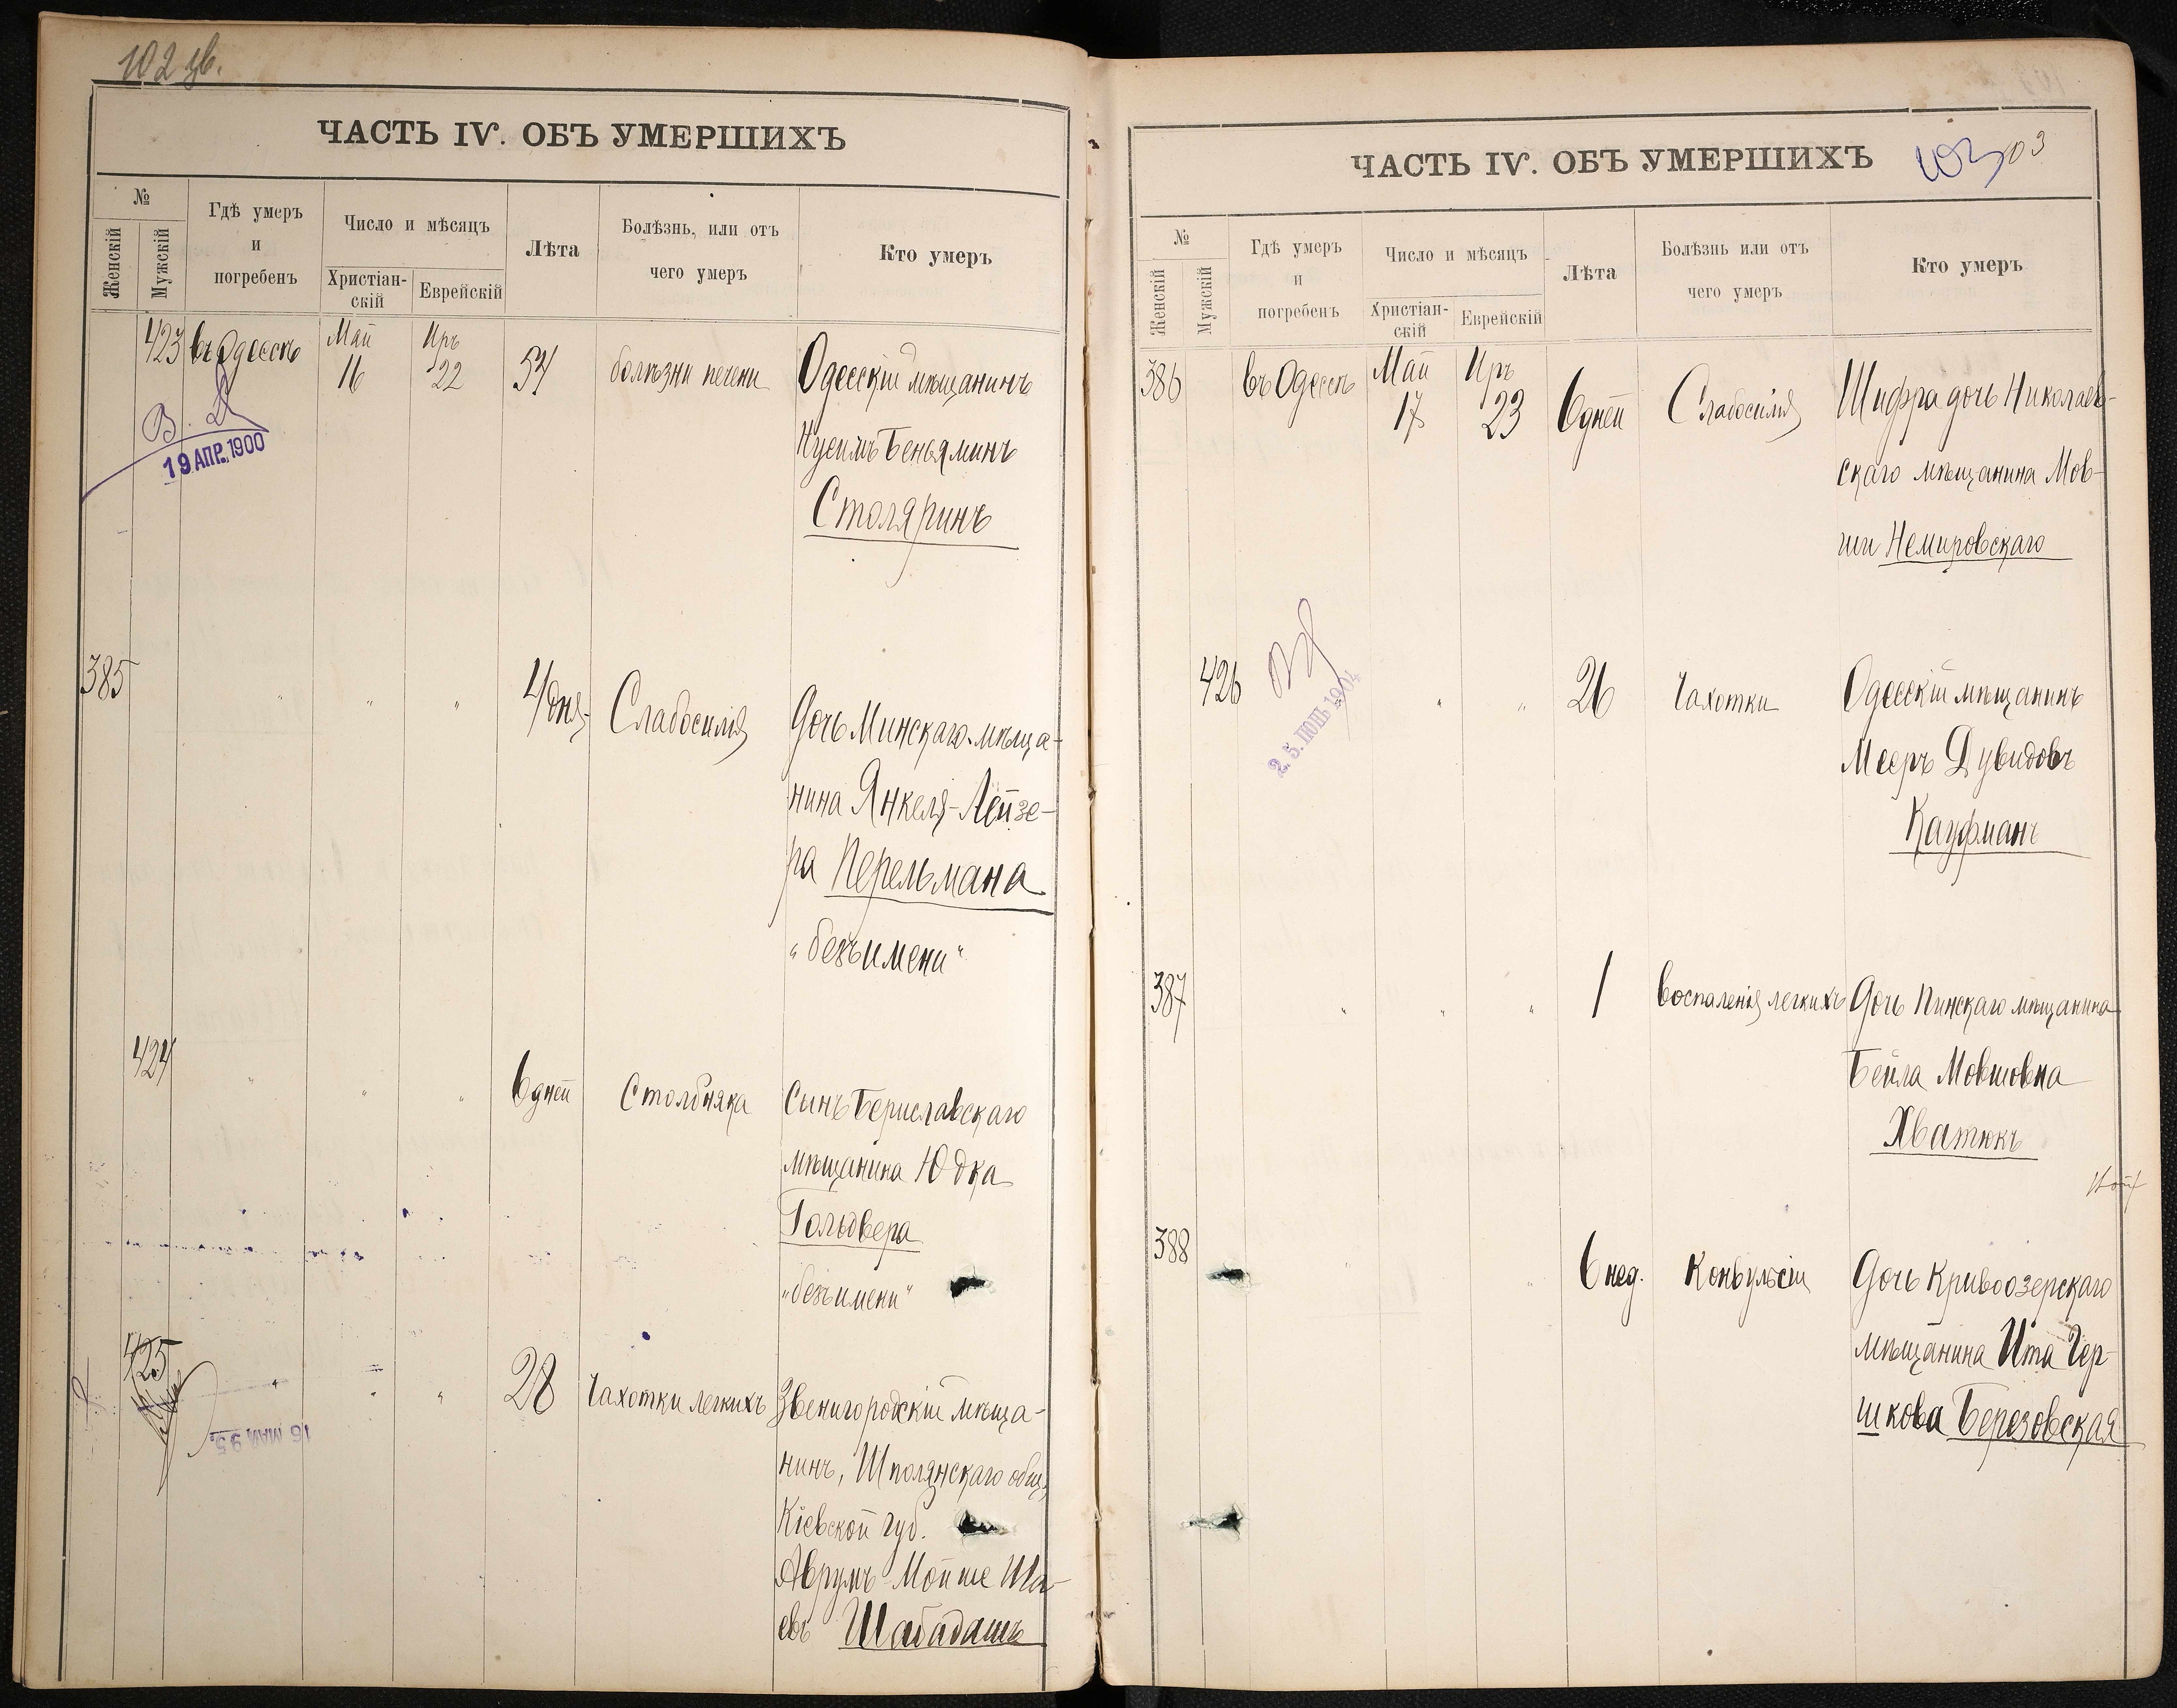 102 зв.
ЧАСТЬ IV. ОБЪ УМЕРШИХЪ
№
Женскій
Мужскій
Гдѣ умеръ
и
погребенъ
Число и мѣсяцъ
Христіан-
скій
Еврейскій
Лѣта
Болѣзнь, или отъ
чего умеръ
Кто умеръ
423 въ Одессѣ Май 16 Иръ 22 54 болѣзни печени Одесскій мѣщанинъ
Нусимъ Беньяминъ
Столяринъ
19 АПР. 1900
385 " " " 4 дня Слабосилія Дочь Минскаго мѣща-
нина Янкеля-Лейзе-
ра Перельмана
"безъ имени"
424 " " " 6 дней Столбняка Сынъ Бериславскаго
мѣщанина Юдка
Гольдвера
"безъ имени"
425 " " " 28 Чахотки легкихъ Звенигородскій мѣща-
нинъ, Шполянскаго общ.,
Кіевской губ.
Аврумъ Мойше Ша-
евъ Шабадашъ
16 МАЙ 95
ЧАСТЬ IV. ОБЪ УМЕРШИХЪ
103
103
№
Женскій
Мужскій
Гдѣ умеръ
и
погребенъ
Число и мѣсяцъ
Христіан-
скій
Еврейскій
Лѣта
Болѣзнь или отъ
чего умеръ
Кто умеръ
386 въ Одессѣ Май 17 Иръ 23 6 дней Слабосилія Шифра дочь Николаев-
скаго мѣщанина Мов-
ши Немировскаго
426 " " 26 Чахотки Одесскій мѣщанинъ
Мееръ Дувидовъ
Кауфманъ
387 " " " 1 Воспаленія легкихъ Дочь Пинскаго мѣщанина
Бейла Мовшовна
Хватюкъ
388 6 нед. Конвульсіи Дочь Кривоозерскаго
мѣщанина Ита Гер-
шкова Березовская